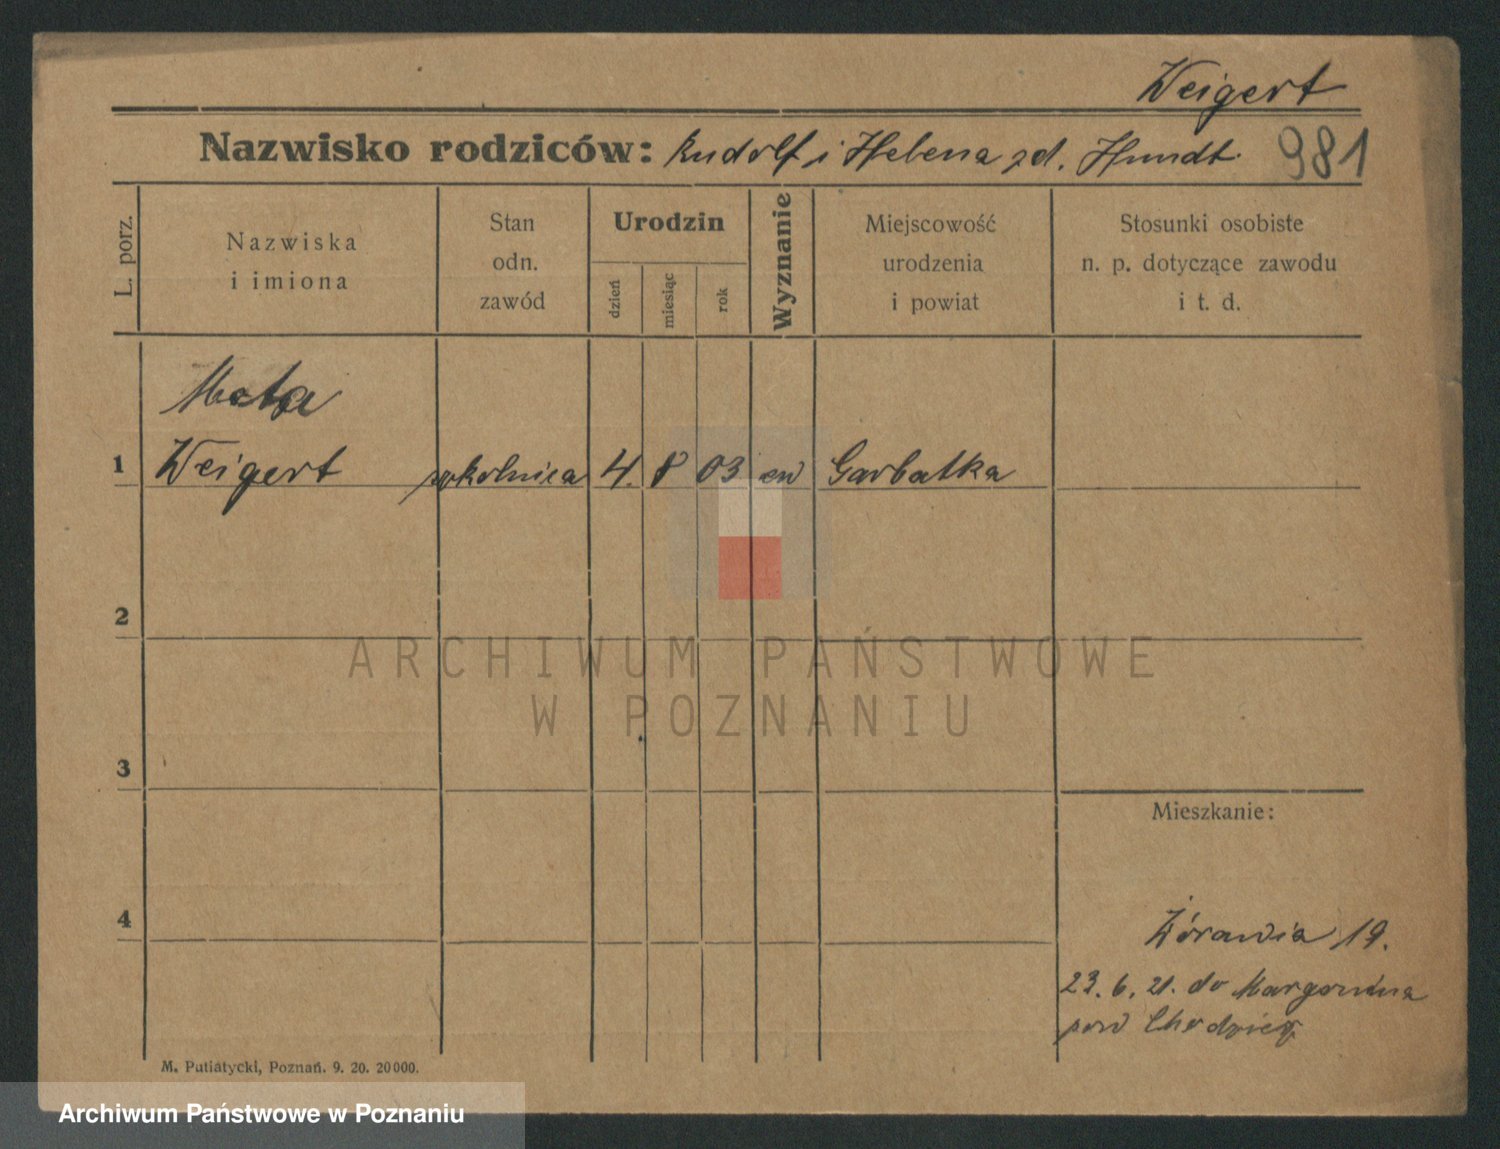 Weigert
Nazwisko rodziców: Rudolf i Helena zd. Hundt. 981
L. porz.
Nazwiska
i imiona
Stan
odn.
zawód
Urodzin
dzień
miesiąc
rok
Wyznanie
Miejscowość
urodzenia
i powiat
Stosunki osobiste
n. p. dotyczące zawodu
i t. d.
Meta
1 Weigert 4. 8 03 ew Garbatka
2
ARCHIWUM PAŃSTWOWE
W POZNANIU
3
Mieszkanie:
4
Żórawia 19.
23. 6. 21. do Margonina
pow Chodzież
M. Putiatycki, Poznań. 9. 20. 20000.
Archiwum Państwowe w Poznaniu